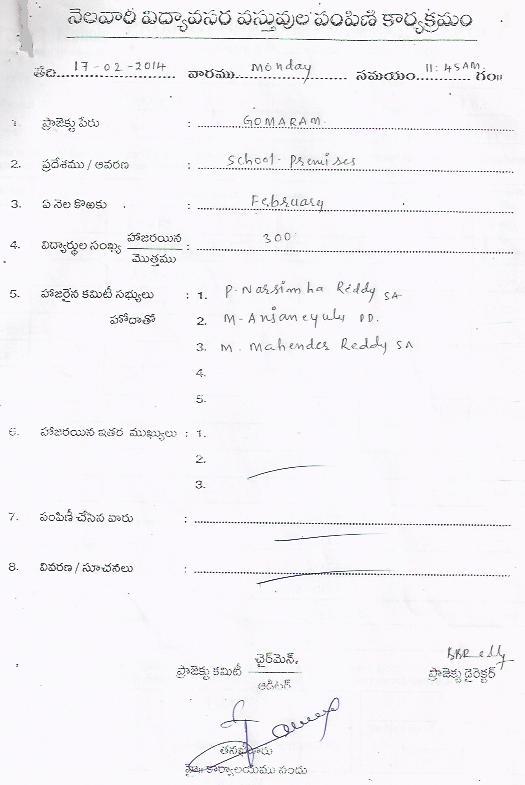 నెలవారి విద్యావసర వస్తువుల పంపిణి కార్యక్రమం
తేది 17-02-2014 వారము Monday సమయం 11:45AM గం॥
1. ప్రాజెక్టు పేరు : GOMARAM.
2. ప్రదేశము / ఆవరణ : School-Premises
3. ఏ నెల కొఱకు : February
4. విద్యార్థుల సంఖ్య హాజరయిన / మొత్తము : 300
5. హాజరైన కమిటీ సభ్యులు : 1. P. Narsimha Reddy SA
హోదాతో 2. M. Anjaneyulu PD.
3. M. Mahender Reddy SA
4.
5.
6. హాజరయిన ఇతర ముఖ్యులు : 1.
2.
3.
7. పంపిణీ చేసిన వారు :
8. వివరణ / సూచనలు :
ప్రాజెక్టు కమిటీ చైర్‌మెన్. / ఆడిటర్ ప్రాజెక్టు డైరెక్టర్
కార్యాలయము నందు